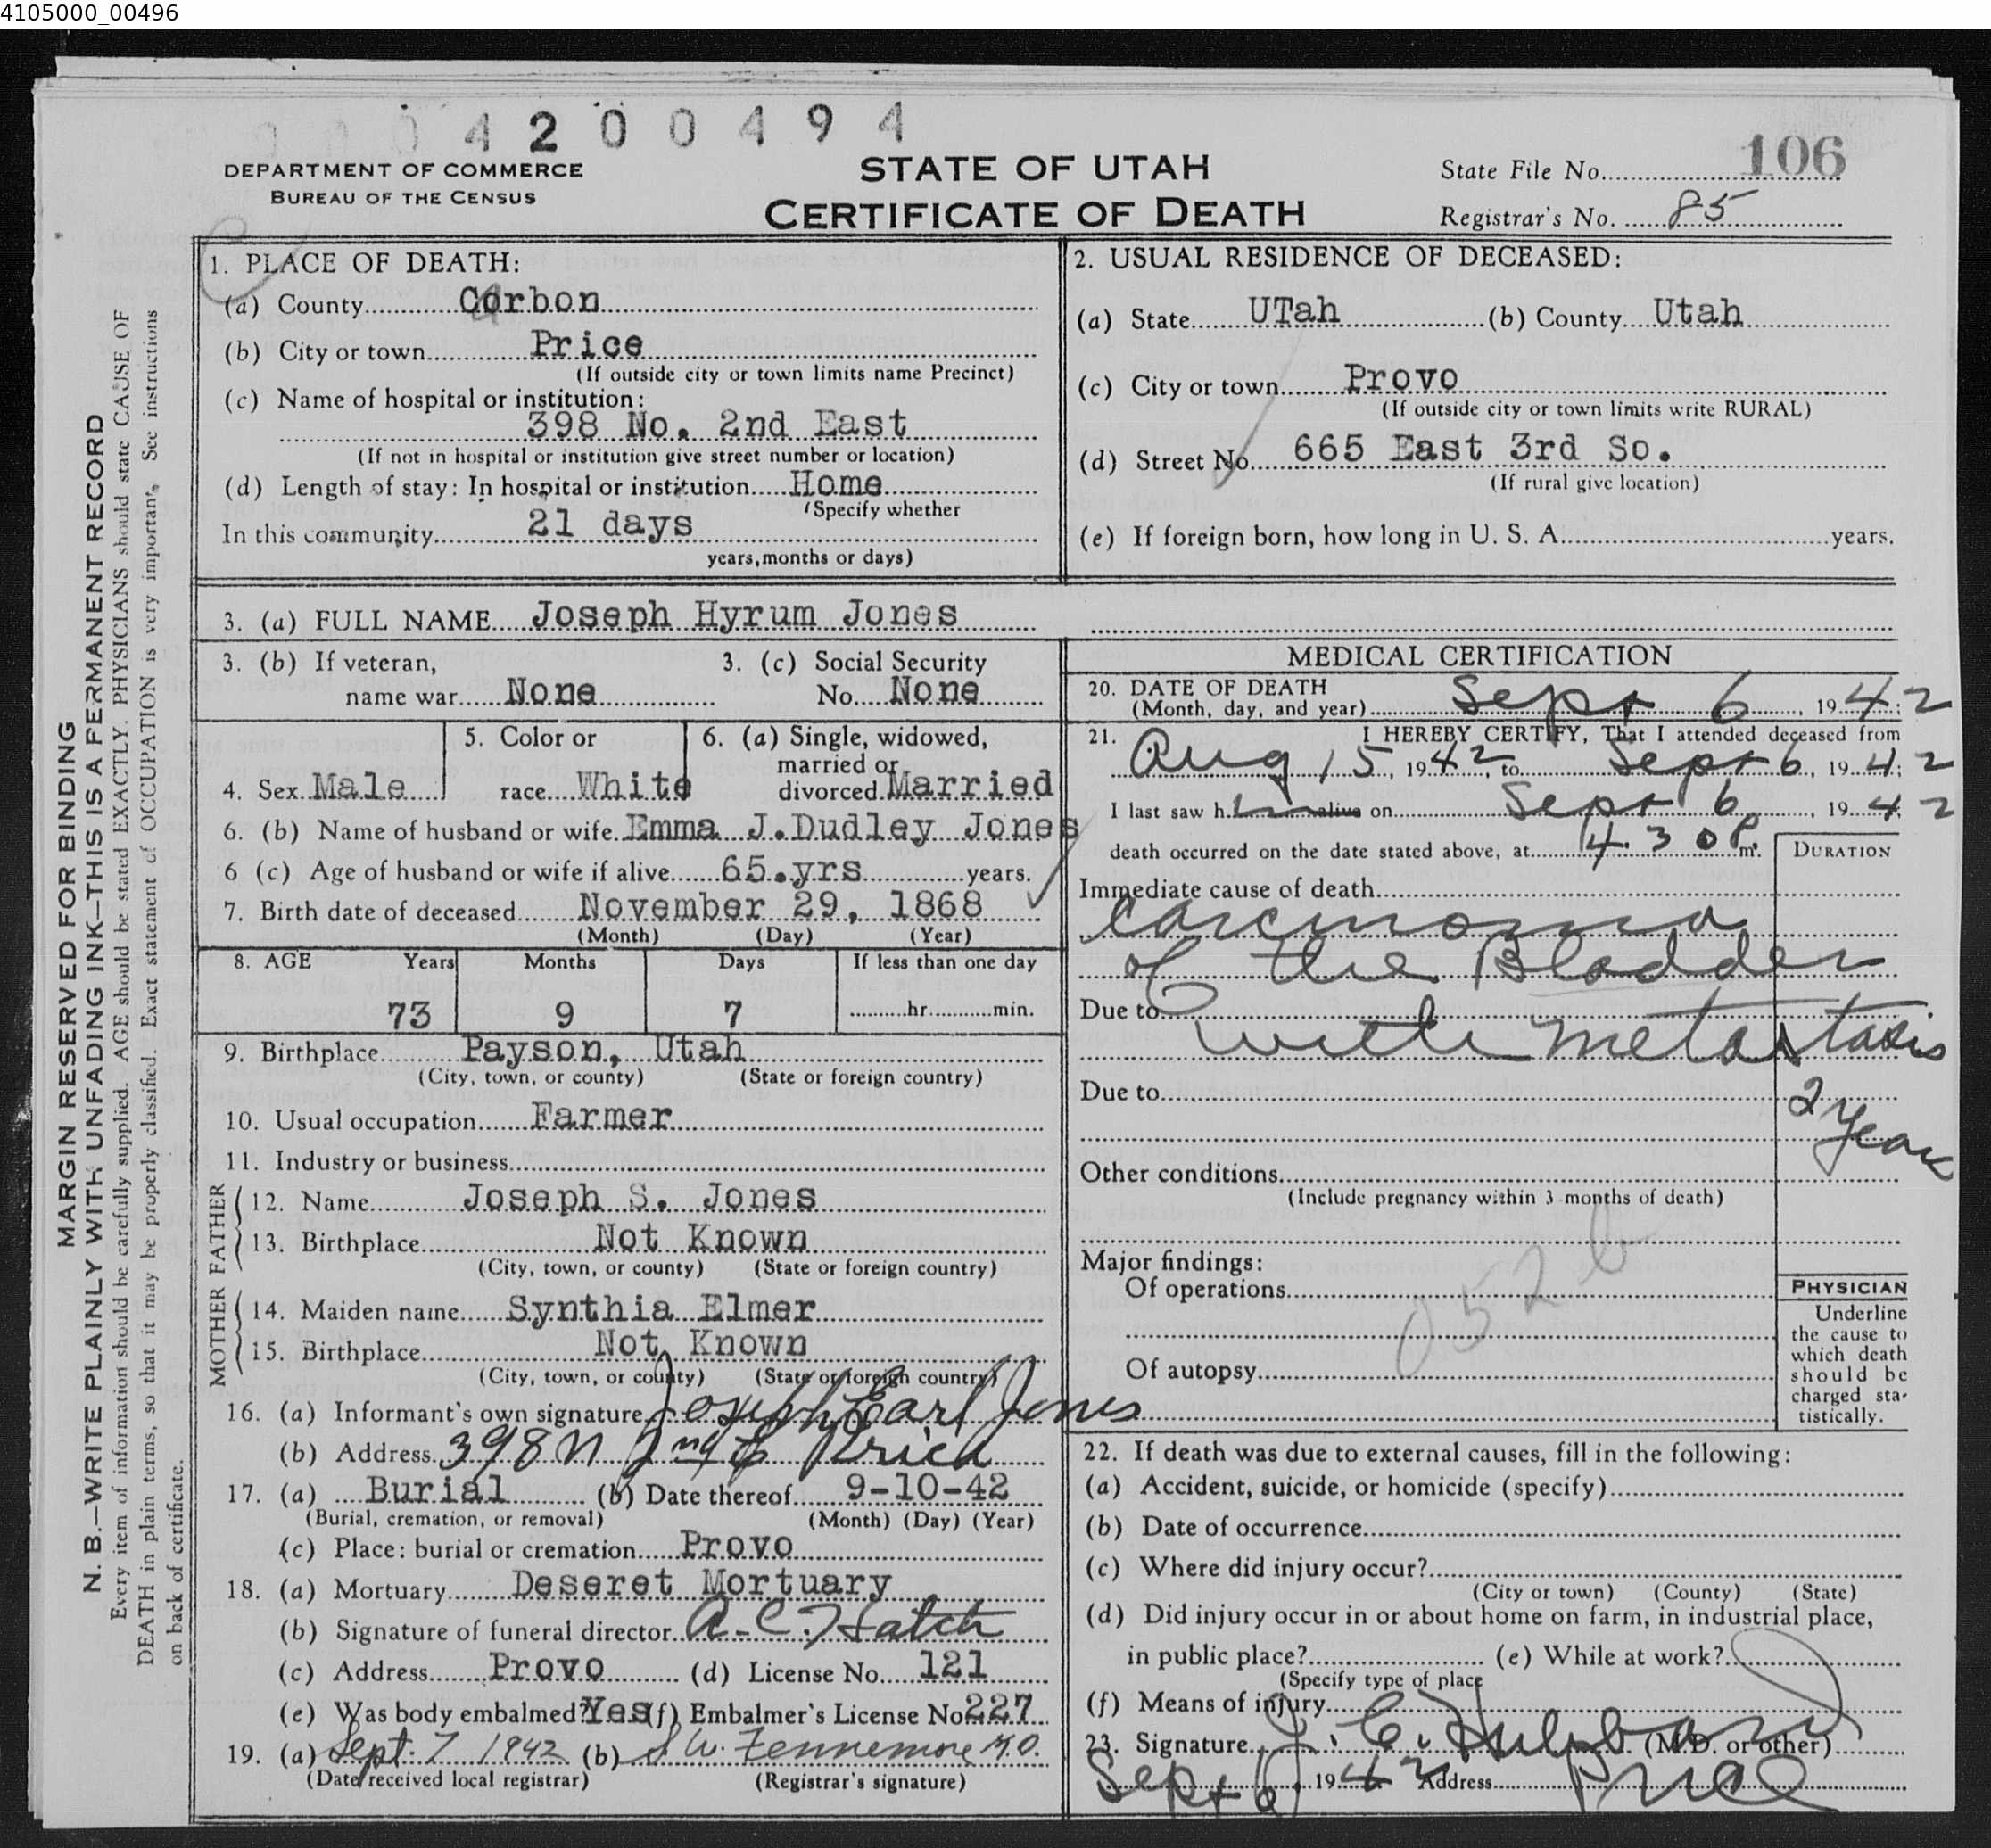 4105000_00496
4200494
DEPARTMENT OF COMMERCE
BUREAU OF THE CENSUS
STATE OF UTAH
CERTIFICATE OF DEATH
State File No. 106
Registrar's No. 85
MARGIN RESERVED FOR BINDING
N. B.—WRITE PLAINLY WITH UNFADING INK—THIS IS A PERMANENT RECORD
Every item of information should be carefully supplied. AGE should be stated EXACTLY. PHYSICIANS should state CAUSE OF
DEATH in plain terms, so that it may be properly classified. Exact statement of OCCUPATION is very important. See instructions
on back of certificate.
1. PLACE OF DEATH:
(a) County Carbon
(b) City or town Price
(If outside city or town limits name Precinct)
(c) Name of hospital or institution:
398 No. 2nd East
(If not in hospital or institution give street number or location)
(d) Length of stay: In hospital or institution Home
(Specify whether
In this community 21 days
years, months or days)
2. USUAL RESIDENCE OF DECEASED:
(a) State UTah (b) County Utah
(c) City or town Provo
(If outside city or town limits write RURAL)
(d) Street No. 665 East 3rd So.
(If rural give location)
(e) If foreign born, how long in U. S. A. years.
3. (a) FULL NAME Joseph Hyrum Jones
3. (b) If veteran,
name war None
3. (c) Social Security
No. None
4. Sex Male
5. Color or
race White
6. (a) Single, widowed,
married or
divorced Married
6. (b) Name of husband or wife Emma J. Dudley Jones
6 (c) Age of husband or wife if alive 65 yrs years.
7. Birth date of deceased November 29, 1868
(Month) (Day) (Year)
8. AGE Years Months Days If less than one day
73 9 7 hr. min.
9. Birthplace Payson, Utah
(City, town, or county) (State or foreign country)
10. Usual occupation Farmer
11. Industry or business
FATHER
12. Name Joseph S. Jones
13. Birthplace Not Known
(City, town, or county) (State or foreign country)
MOTHER
14. Maiden name Synthia Elmer
15. Birthplace Not Known
(City, town, or county) (State or foreign country)
16. (a) Informant's own signature Joseph Earl Jones
(b) Address 398 N 2nd E Price
17. (a) Burial (b) Date thereof 9-10-42
(Burial, cremation, or removal) (Month) (Day) (Year)
(c) Place: burial or cremation Provo
18. (a) Mortuary Deseret Mortuary
(b) Signature of funeral director A. C. Hatch
(c) Address Provo (d) License No. 121
(e) Was body embalmed? Yes (f) Embalmer's License No. 227
19. (a) Sept. 7 1942 (b) S. W. Fennemore M.D.
(Date received local registrar) (Registrar's signature)
MEDICAL CERTIFICATION
20. DATE OF DEATH
(Month, day, and year) Sept 6, 1942
21. I HEREBY CERTIFY, That I attended deceased from
Aug 15, 1942, to Sept 6, 1942
I last saw him alive on Sept 6, 1942
death occurred on the date stated above, at 4:30 P. m.
DURATION
Immediate cause of death
Carcinoma
of the Bladder
Due to
with metastasis
Due to
2 years
Other conditions
(Include pregnancy within 3 months of death)
Major findings:
Of operations
052b
Of autopsy
PHYSICIAN
Underline
the cause to
which death
should be
charged sta-
tistically.
22. If death was due to external causes, fill in the following:
(a) Accident, suicide, or homicide (specify)
(b) Date of occurrence
(c) Where did injury occur?
(City or town) (County) (State)
(d) Did injury occur in or about home on farm, in industrial place,
in public place? (e) While at work?
(Specify type of place
(f) Means of injury
23. Signature J. C. Hubbard (M.D. or other)
Sept 6, 1942 Address Price